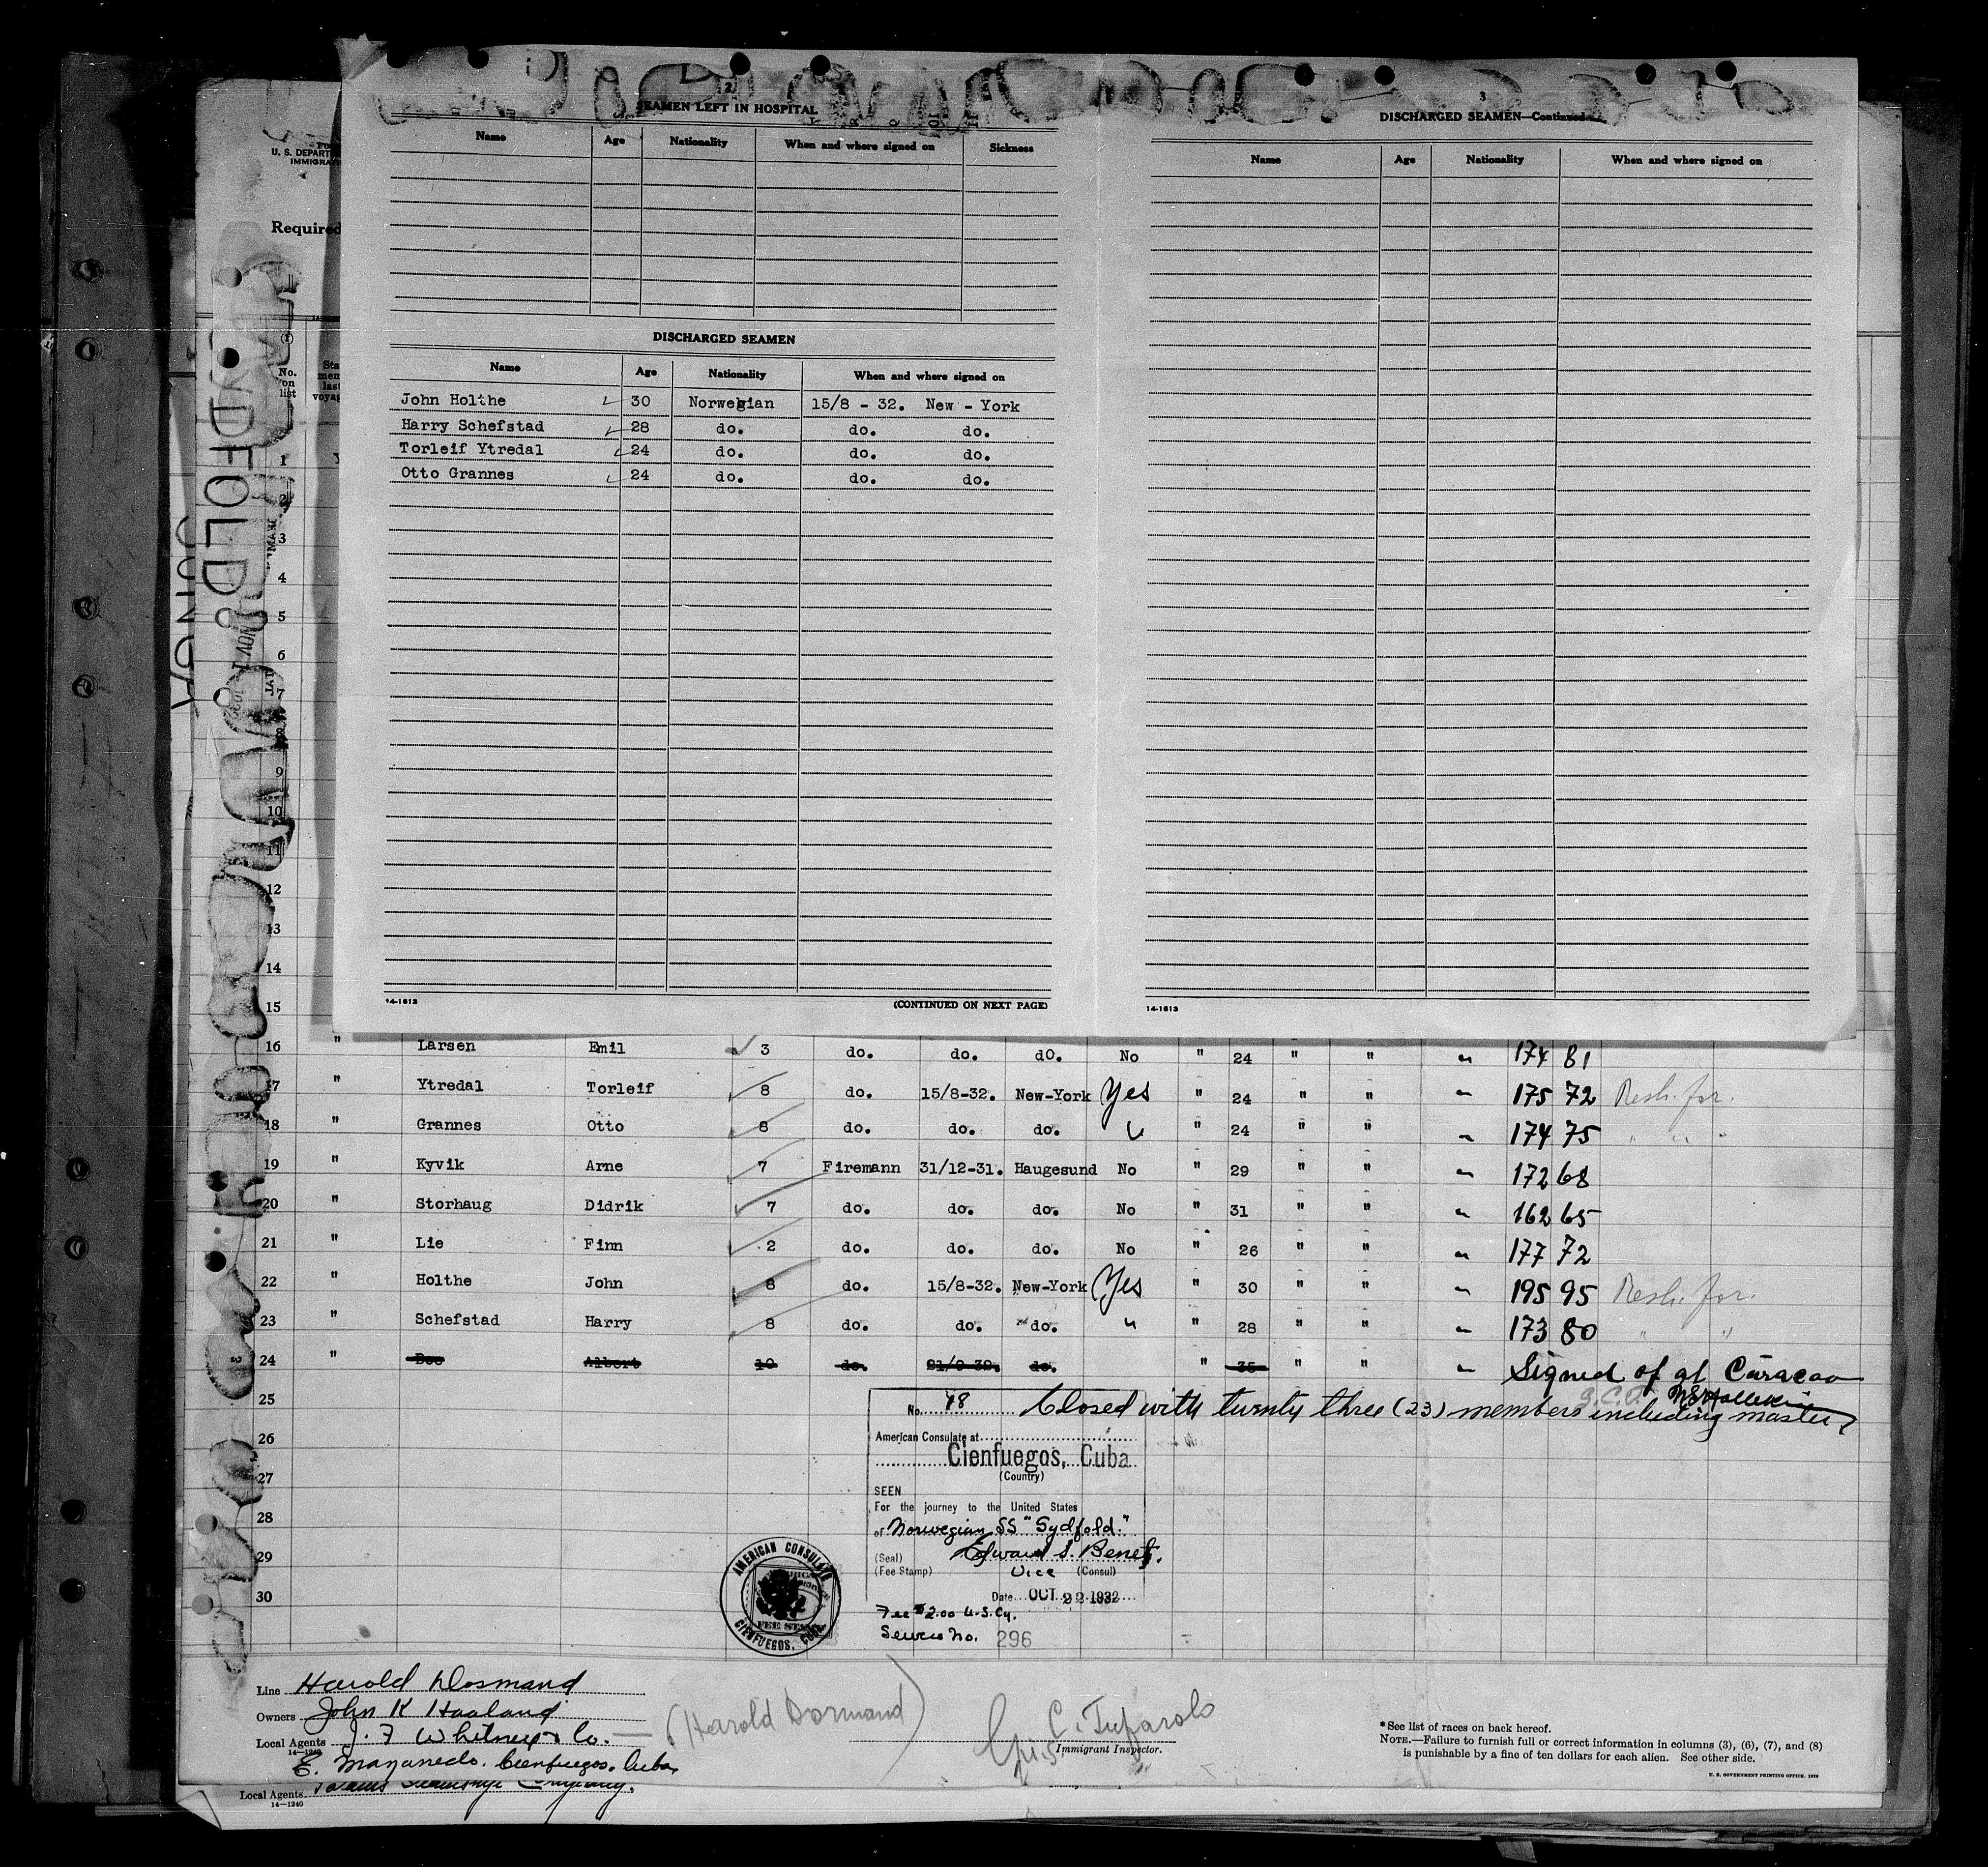 2
SEAMEN LEFT IN HOSPITAL
Name Age Nationality When and where signed on Sickness
DISCHARGED SEAMEN
Name Age Nationality When and where signed on
John Holthe 30 Norwegian 15/8 - 32. New - York
Harry Schefstad 28 do. do. do.
Torleif Ytredal 24 do. do. do.
Otto Grannes 24 do. do. do.
14-1613 (CONTINUED ON NEXT PAGE)
3
DISCHARGED SEAMEN—Continued
Name Age Nationality When and where signed on
14-1613
U. S. DEPART
IMMIGRA
Required
No. on list
SYDFOLD
NOV 1
1
2
3
4
5
6
7
8
9
10
11
12
13
14
15
16 " Larsen Emil 3 do. do. dO. No " 24 " " " 174 81
17 " Ytredal Torleif 8 do. 15/8-32. New-York Yes " 24 " " " 175 72 Resh. for.
18 " Grannes Otto 8 do. do. do. " " 24 " " " 174 75 " " "
19 " Kyvik Arne 7 Firemann 31/12-31. Haugesund No " 29 " " " 172 68
20 " Storhaug Didrik 7 do. do. do. No " 31 " " " 162 65
21 " Lie Finn 2 do. do. do. No " 26 " " " 177 72
22 " Holthe John 8 do. 15/8-32. New-York Yes " 30 " " " 195 95 Resh. for.
23 " Schefstad Harry 8 do. do. do. " " 28 " " " 173 80 " "
24 " Albert 10 do. 21/9-32. do. " 35 " " " Signed of at Curacao
25
26
27
28
29
30
No. 48 Closed with twenty three (23) members including master
American Consulate at
Cienfuegos, Cuba
(Country)
SEEN
For the journey to the United States
of Norwegian SS "Sydfold."
Edward S. Benet.
(Seal)
(Fee Stamp) Vice (Consul)
Date OCT 22 1932
Fee $2.00 U.S.Cy.
Service No. 296
AMERICAN CONSULATE
FEE STAMP
CIENFUEGOS, CUBA
Line Harold Dosmand
Owners John K Haaland
Local Agents J. F Whitney & Co.
14-1240
E. Mazarredo. Cienfuegos. Cuba
(Harold Dormand)
Immigrant Inspector.
* See list of races on back hereof.
NOTE.—Failure to furnish full or correct information in columns (3), (6), (7), and (8)
is punishable by a fine of ten dollars for each alien. See other side.
U. S. GOVERNMENT PRINTING OFFICE: 1929
Local Agents
14-1240